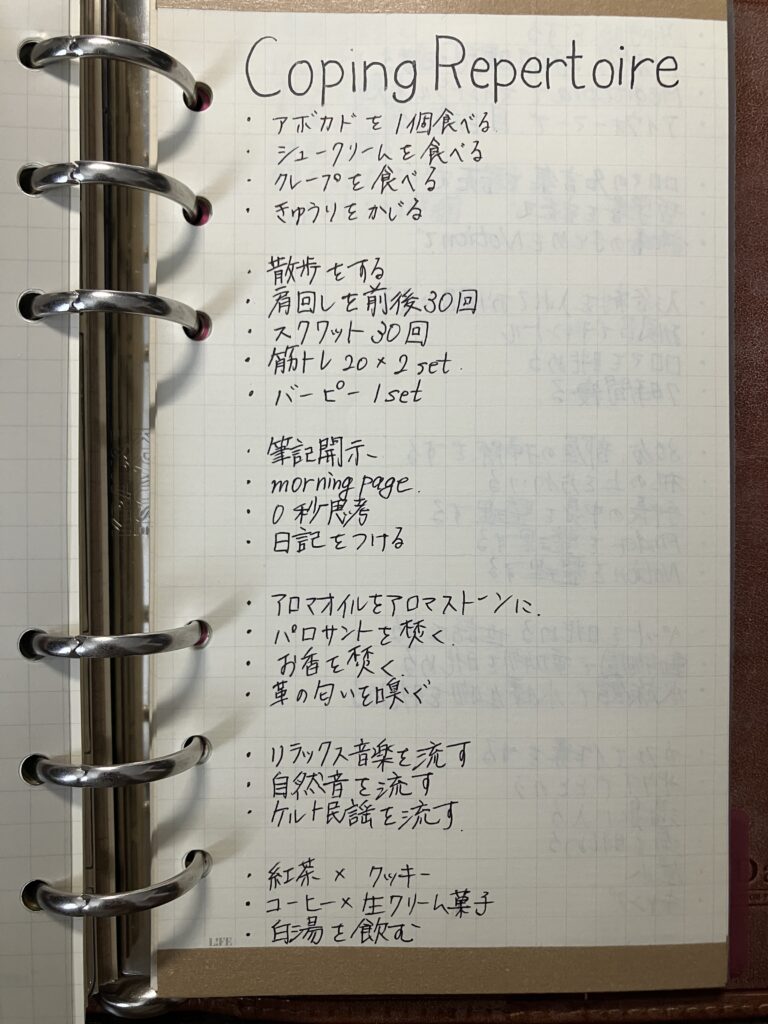 Coping Repertoire
・アボカドを1個食べる
・シュークリームを食べる
・クレープを食べる
・きゅうりをかじる
・散歩をする
・肩回しを前後30回
・スクワット30回
・筋トレ 20×2 set.
・バーピー 1set
・筆記開示
・morning page.
・0秒思考
・日記をつける
・アロマオイルをアロマストーンに.
・パロサントを焚く.
・お香を焚く.
・革の匂いを嗅ぐ
・リラックス音楽を流す
・自然音を流す
・ケルト民謡を流す.
・紅茶 × クッキー
・コーヒー×生クリーム菓子
・白湯を飲む
LIFE